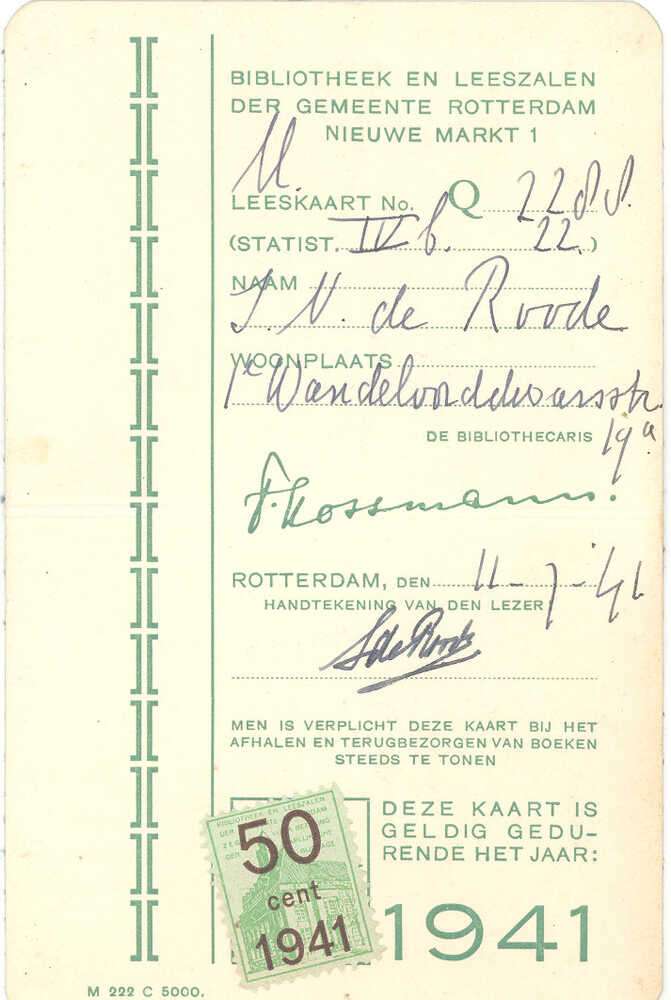 BIBLIOTHEEK EN LEESZALEN
DER GEMEENTE ROTTERDAM
NIEUWE MARKT 1
M.
LEESKAART No. Q 2288.
(STATIST. IV b. 22.)
NAAM
J. N. de Roode
WOONPLAATS
1e
19a
DE BIBLIOTHECARIS
F. Kossmann.
ROTTERDAM, DEN 11-7-41
HANDTEKENING VAN DEN LEZER
J de Roode
MEN IS VERPLICHT DEZE KAART BIJ HET
AFHALEN EN TERUGBEZORGEN VAN BOEKEN
STEEDS TE TONEN
BIBLIOTHEEK EN LEESZALEN
50
cent
1941
DEZE KAART IS
GELDIG GEDU-
RENDE HET JAAR:
1941
M 222 C 5000.